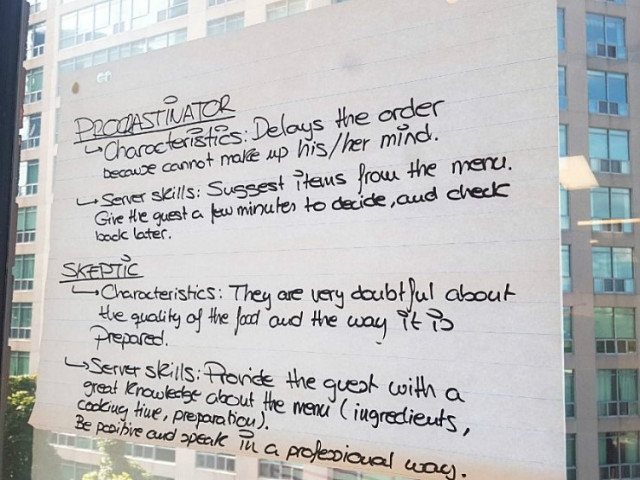 PROCRASTINATOR
↳ Characteristics: Delays the order
because cannot make up his/her mind.
↳ Server skills: Suggest items from the menu.
Give the guest a few minutes to decide, and check
back later.
SKEPTIC
↳ Characteristics: They are very doubtful about
the quality of the food and the way it is
prepared.
↳ Server skills: Provide the guest with a
great knowledge about the menu (ingredients,
cooking time, preparation).
Be positive and speak in a professional way.